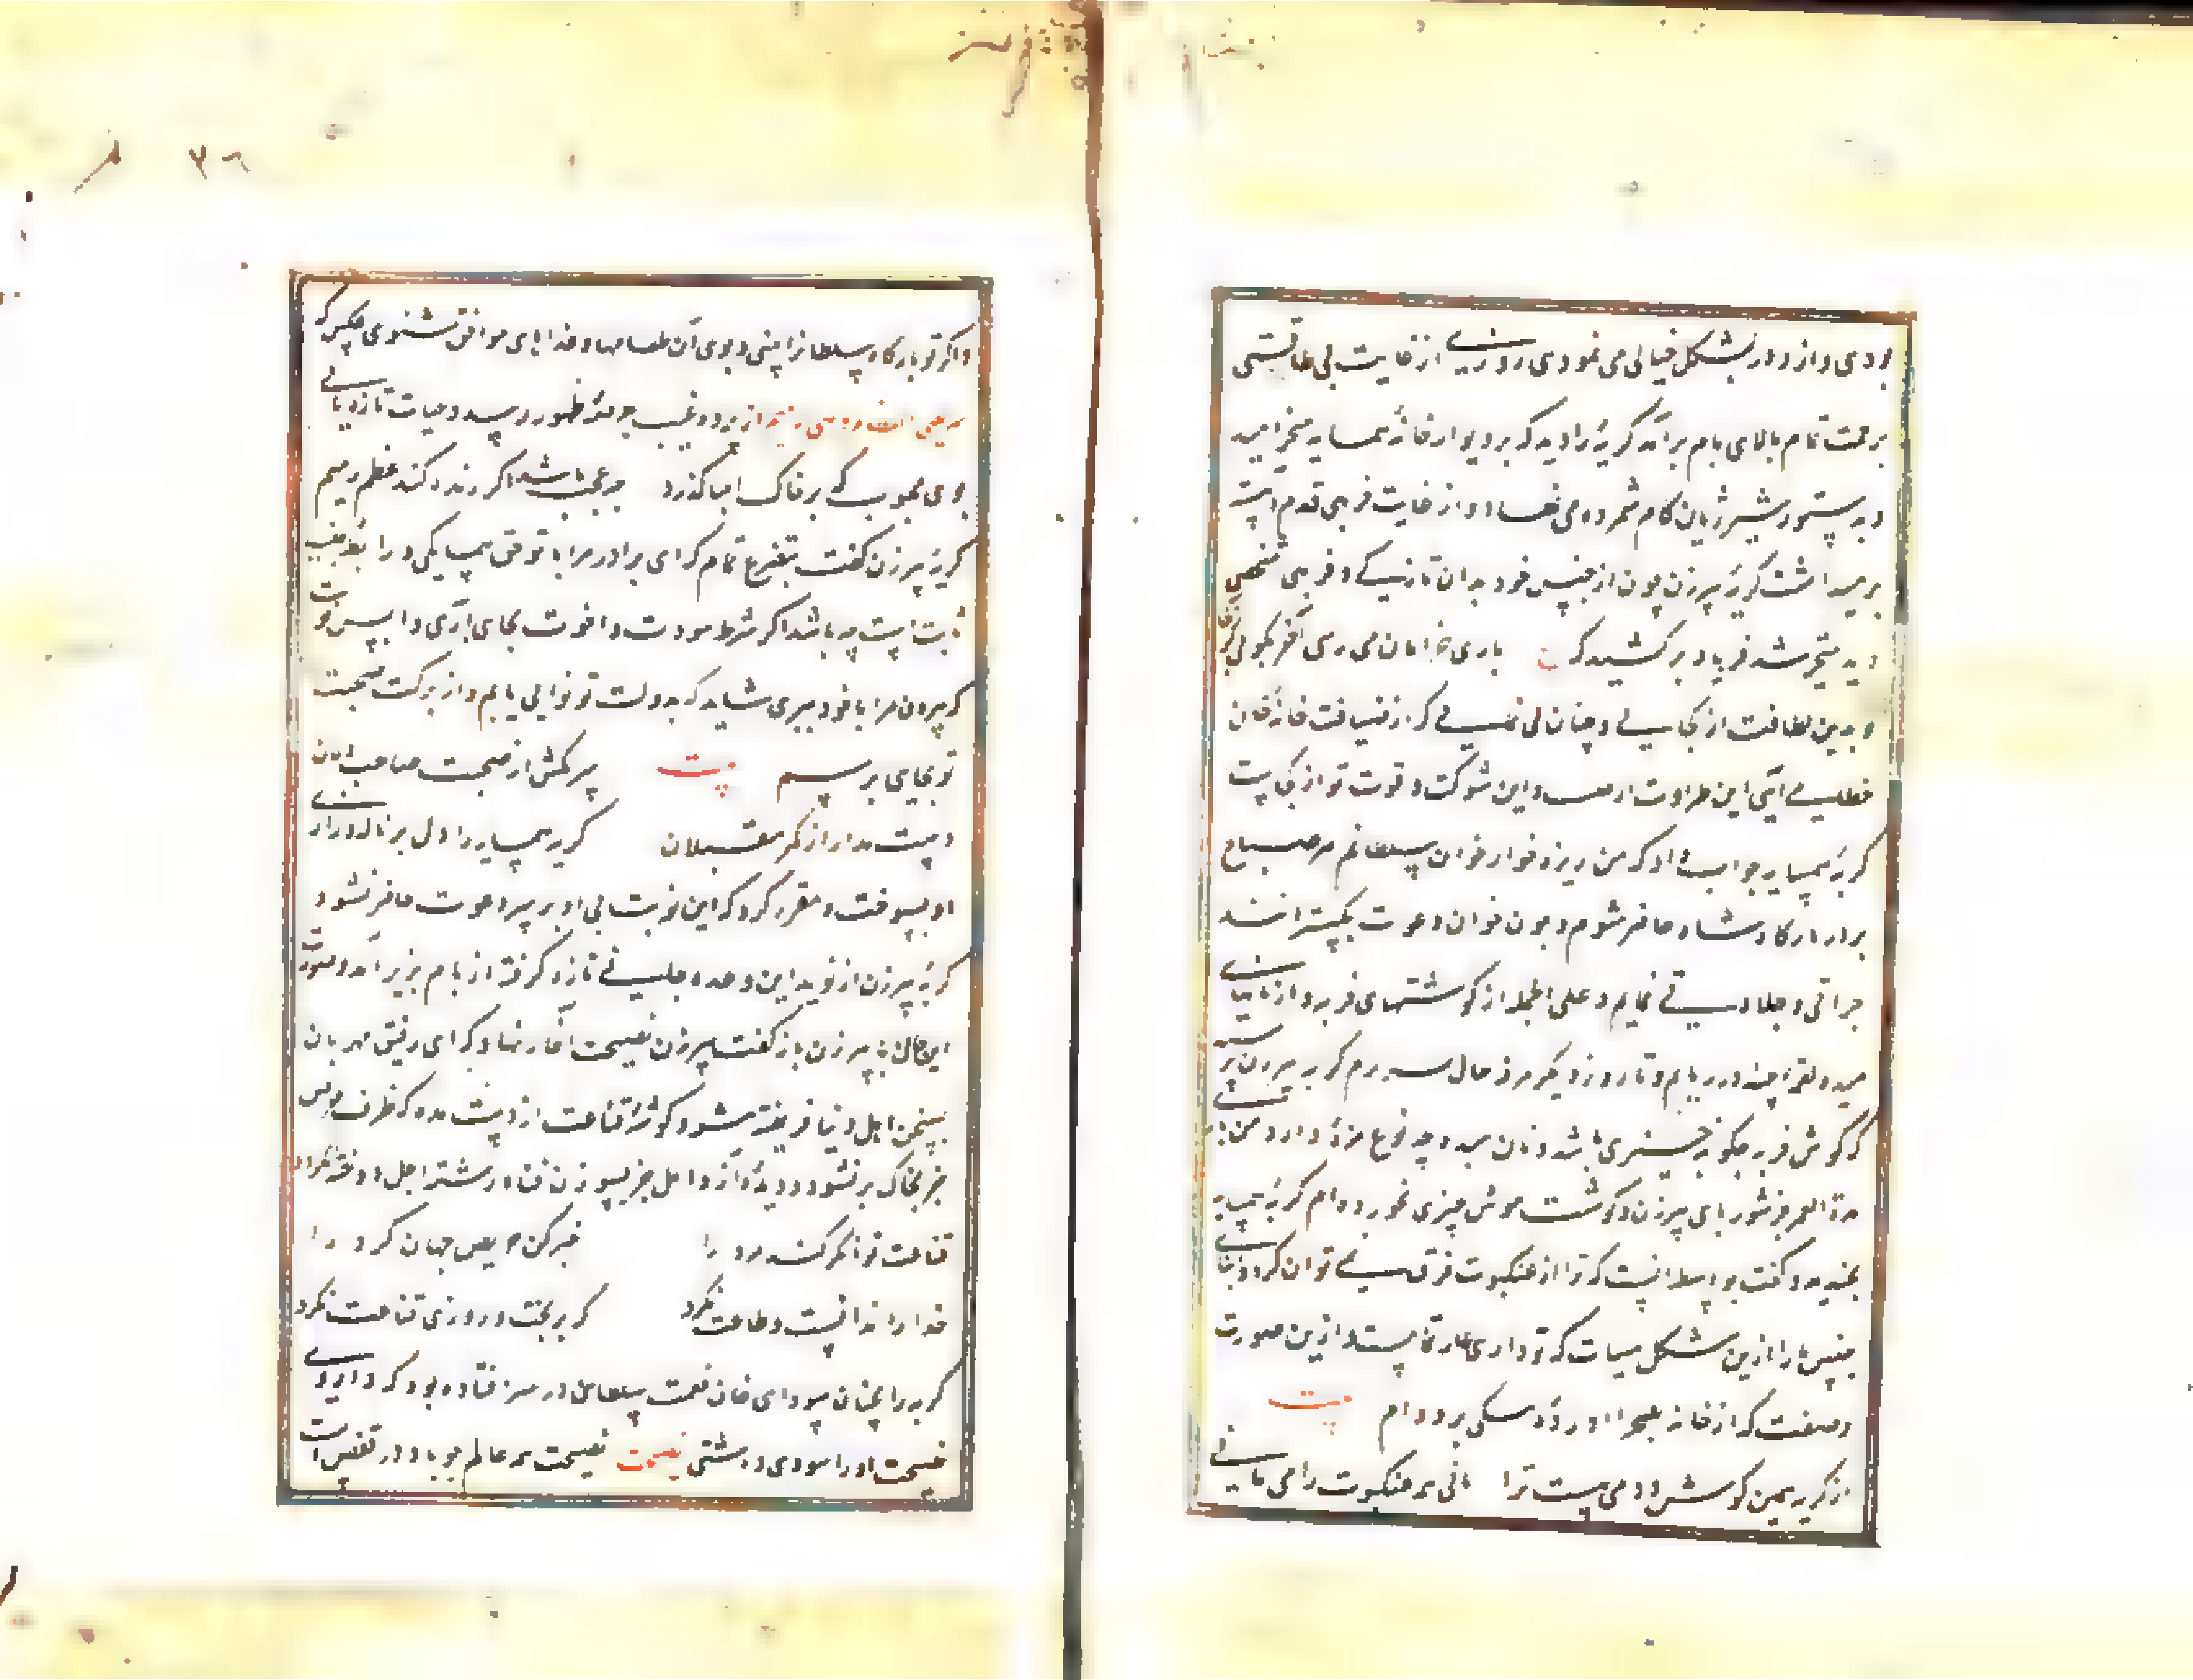 بودی و از دور بشکل خیالی می نمودی روزی از غایت بی طاقتی
بزحمت تمام بالای بام برآمد گربهٔ را دید که بر دیوار خانهٔ همسایه میخرامید
و بدستور شیر ژیان گام شمرده می نهاد و از غایت فربهی قدم آهسته
برمیداشت گربهٔ پیرزن چون از جنس خود بدان تازگی و فربهی شخصی
دید متحیر شد فریاد برکشید که باری خرامان می رسی آخر نگوئی از کجا
و بدین لطافت از کجایی و چنان می نمایی که از ضیافت خانهٔ خان
خطایی آیی این طراوت از چیست و این شوکت و قوت تو از کجاست
گربهٔ همسایه جواب داد که من ریزه خوار خوان سلطانم هر صباح
بر در بارگاه شاه حاضر شوم و چون خوان دعوت بگسترانند
جرأتی و جلادتی نمایم و علی الجمله از گوشتهای فربه و از نانهای
میده لقمهٔ چند در ربایم و تا روز دیگر مرفه حال بسر برم گربه پیرزن پرسید
که گوشت فربه چگونه چیزی باشد و نان میده چه نوع مزهٔ دارد من
مدة العمر جز شوربای پیرزن و گوشت موش چیزی نخورده ام گربهٔ همسایه
بخندید و گفت بواسطه اینست که ترا از عنکبوت فرق نمی توان کرد و
جنس ما را ازین شکل و هیات که تو داری عار تمامست و ازین صورت
و صفت که از خانه بصحرا آوردهٔ ننگی بر دوام بیت
از گربه همین گوش و دمی هست ترا باقی همه عنکبوت را می مانی
و اگر تو بارگاه سلطانرا بینی و بوی آن طعامها و غذاهای موافق شنوی ممکن که
یحیی العظام و هی رمیم از پردهٔ غیب بعرصهٔ ظهور رسد و حیات تازه یابی
بوی محبوب که بر خاک احبا گذرد چه عجب باشد اگر زنده کند عظم رمیم
گربهٔ پیرزن گفت بتضرع تمام که ای برادر مرا با تو حق همسایگی و رابطهٔ جنسیت
ثابت است چه باشد اگر شرط مودت و اخوت بجای آری و این نوبت
که میروی مرا با خود ببری شاید که بدولت تو نوایی یابم و از برکت صحبت
تو بجایی برسم بیت سر مکش از صحبت صاحبدلان
دست مدار از کمر مقبلان گربه همسایه را دل بر ناله و زاری
او بسوخت و مقرر کرد که این نوبت بی او بر سر دعوت حاضر نشود
گربهٔ پیرزن از نوید این وعده جانی تازه گرفته از بام بزیر آمد و صورت
این حال با پیرزن باز گفت پیرزن نصیحت آغاز نهاد که ای رفیق مهربان
بسخن اهل دنیا فریفته مشو و گوشهٔ قناعت از دست مده که ظرف حرص
جز بخاک پر نشود و دیدهٔ آز و امل جز بسوزن فنا و رشته اجل دوخته نگردد
قناعت توانگر کند مرد را خبر کن حریص جهان گرد را
خدا را ندانست و طاعت نکرد که بر بخت و روزی قناعت نکرد
گربه را چنان سودای خوان نعمت سلطان در سر افتاده بود که داروی
نصیحت او را سودی داشتی نصیحت نصیحت همه عالم چو باد در قفس است